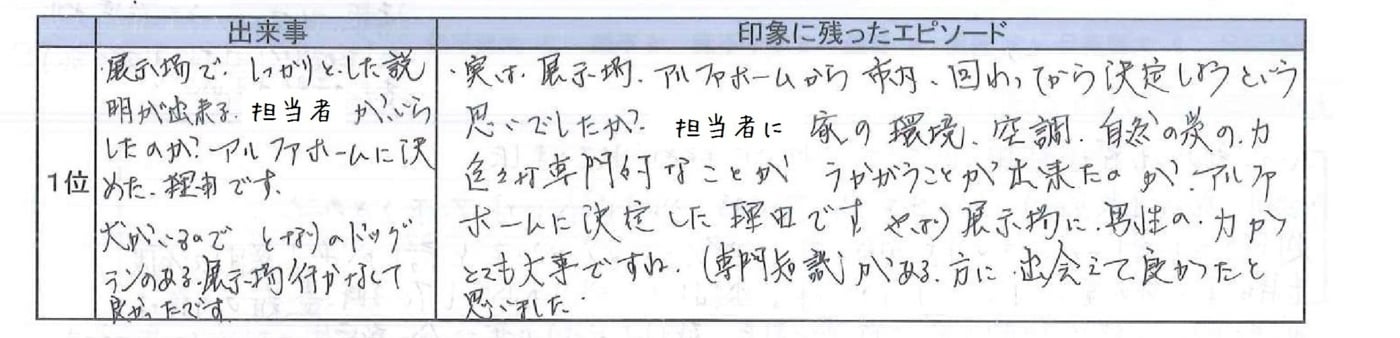 出来事
印象に残ったエピソード
1位
・展示場で、しっかりとした説
明が出来る、担当者がいら
したのが、アルファホームに決
めた、理由です。
犬がいるので となりのドッグ
ランのある、展示場行かなくて
良かったです
・実は、展示場、アルファホームから市内、回わってから決定しようという
思いでしたが、担当者に 家の環境、空調、自然の炭の、力
色々な専門的なことが うかがうことが出来たのが、アルファ
ホームに決定した理由です やはり展示場に、男性の、力が
とても大事ですね、(専門知識)がある、方に、出会えて良かったと
思いました